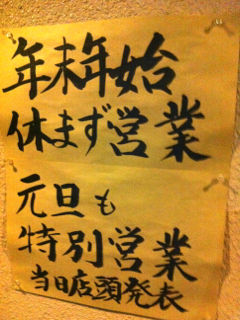 年末年始
休まず営業
元旦も
特別営業
当日店頭発表